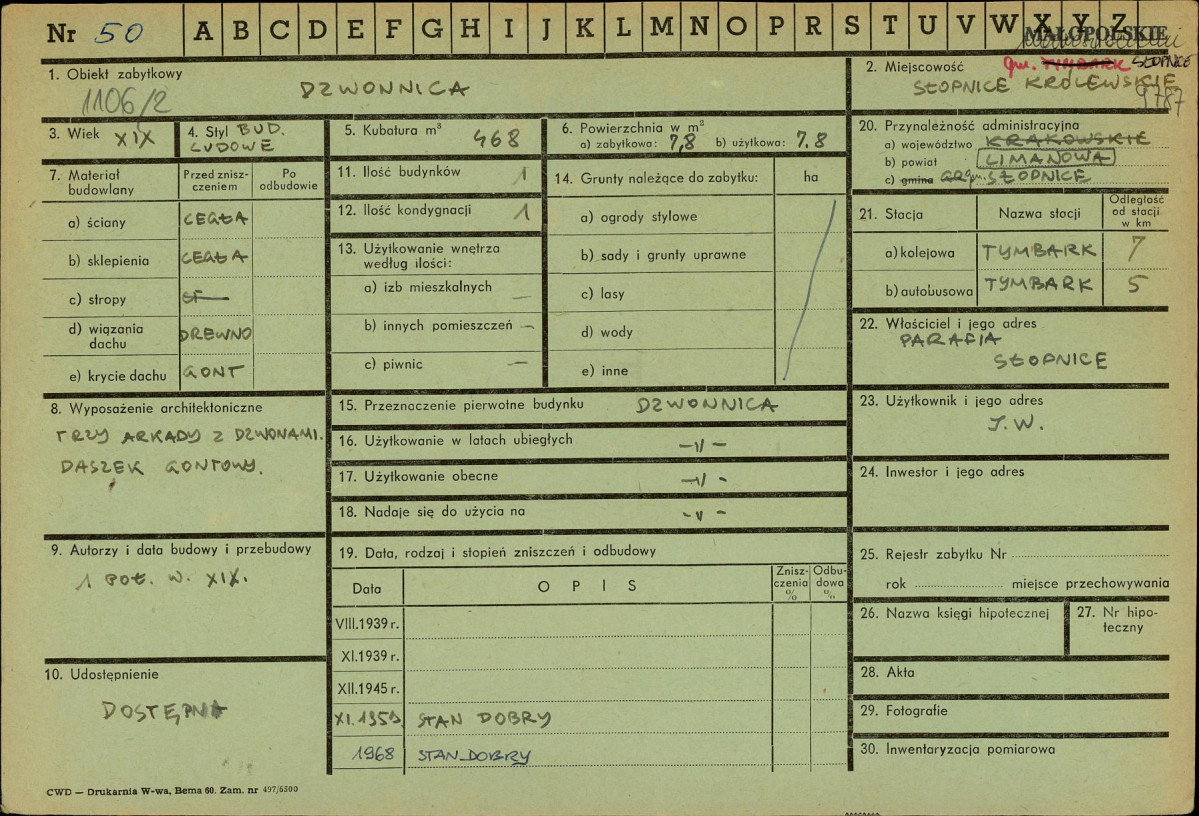 Nr 50 A B C D E F G H I J K L M N O P R S T U V W X Y Z
MAŁOPOLSKIE
1. Obiekt zabytkowy
1106/2
DZWONNICA
2. Miejscowość gm. TYMBARK SŁOPNICE
SŁOPNICE KRÓLEWSKIE
9787
3. Wiek XIX
4. Styl BUD.
LUDOWE
5. Kubatura m³ 468
6. Powierzchnia w m²
a) zabytkowa: 7,8 b) użytkowa: 7,8
7. Materiał budowlany
Przed zniszczeniem
Po odbudowie
a) ściany CEGŁA
b) sklepienia CEGŁA
c) stropy
d) wiązania dachu DREWNO
e) krycie dachu GONT
8. Wyposażenie architektoniczne
TRZY ARKADY Z DZWONAMI.
DASZEK GONTOWY.
9. Autorzy i data budowy i przebudowy
1 POŁ. W. XIX.
10. Udostępnienie
DOSTĘPNA
11. Ilość budynków 1
12. Ilość kondygnacji 1
13. Użytkowanie wnętrza
według ilości:
a) izb mieszkalnych —
b) innych pomieszczeń —
c) piwnic —
14. Grunty należące do zabytku: ha
a) ogrody stylowe
b) sady i grunty uprawne
c) lasy
d) wody
e) inne
15. Przeznaczenie pierwotne budynku DZWONNICA
16. Użytkowanie w latach ubiegłych —"—
17. Użytkowanie obecne —"-
18. Nadaje się do użycia na -"-
19. Data, rodzaj i stopień zniszczeń i odbudowy
Data
OPIS
Zniszczenia %
Odbudowa %
VIII.1939 r.
XI.1939 r.
XII.1945 r.
XI.1959 STAN DOBRY
1968 STAN DOBRY
20. Przynależność administracyjna
a) województwo KRAKOWSKIE
b) powiat LIMANOWA
c) gmina gm. SŁOPNICE
21. Stacja
Nazwa stacji
Odległość od stacji w km
a) kolejowa TYMBARK 7
b) autobusowa TYMBARK 5
22. Właściciel i jego adres
PARAFIA
SŁOPNICE
23. Użytkownik i jego adres
J.W.
24. Inwestor i jego adres
25. Rejestr zabytku Nr
rok miejsce przechowywania
26. Nazwa księgi hipotecznej
27. Nr hipoteczny
28. Akta
29. Fotografie
30. Inwentaryzacja pomiarowa
CWD — Drukarnia W-wa, Bema 60. Zam. nr 497/6500